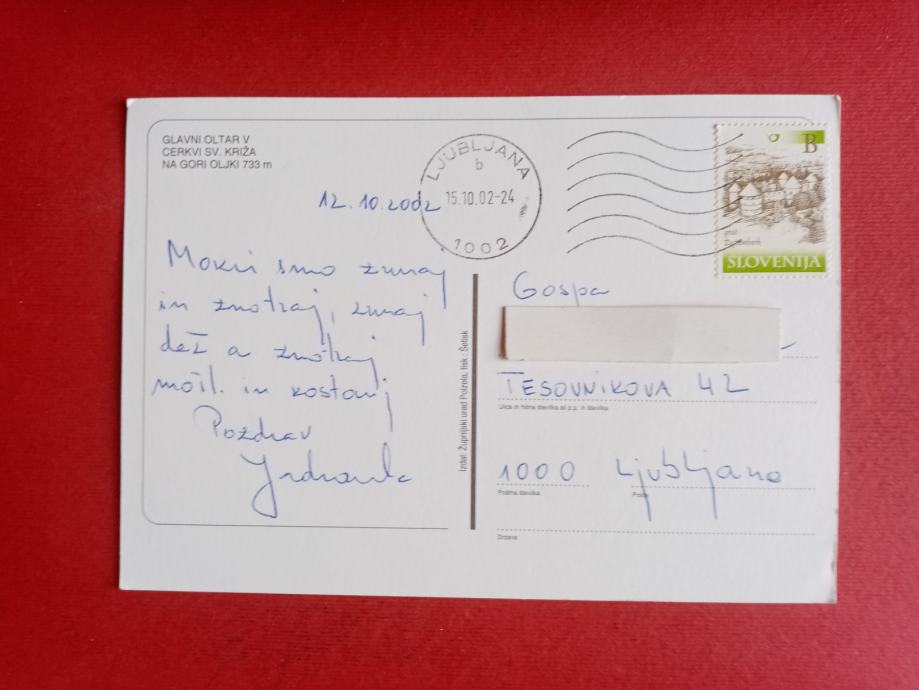 GLAVNI OLTAR V
CERKVI SV. KRIŽA
NA GORI OLJKI 733 m
12.10.2002
Mokri smo zunaj
in znotraj, zunaj
dež a znotraj
mošt. in kostanj
Pozdrav
LJUBLJANA
b
15.10.02-24
1002
B
grad
SLOVENIJA
Izdal: Župnijski urad Polzela, tisk: Šetisk
Gospa
TESOVNIKOVA 42
Ulica in hišna številka ali p.p. in številka
1000 Ljubljana
Poštna številka Pošta
Država